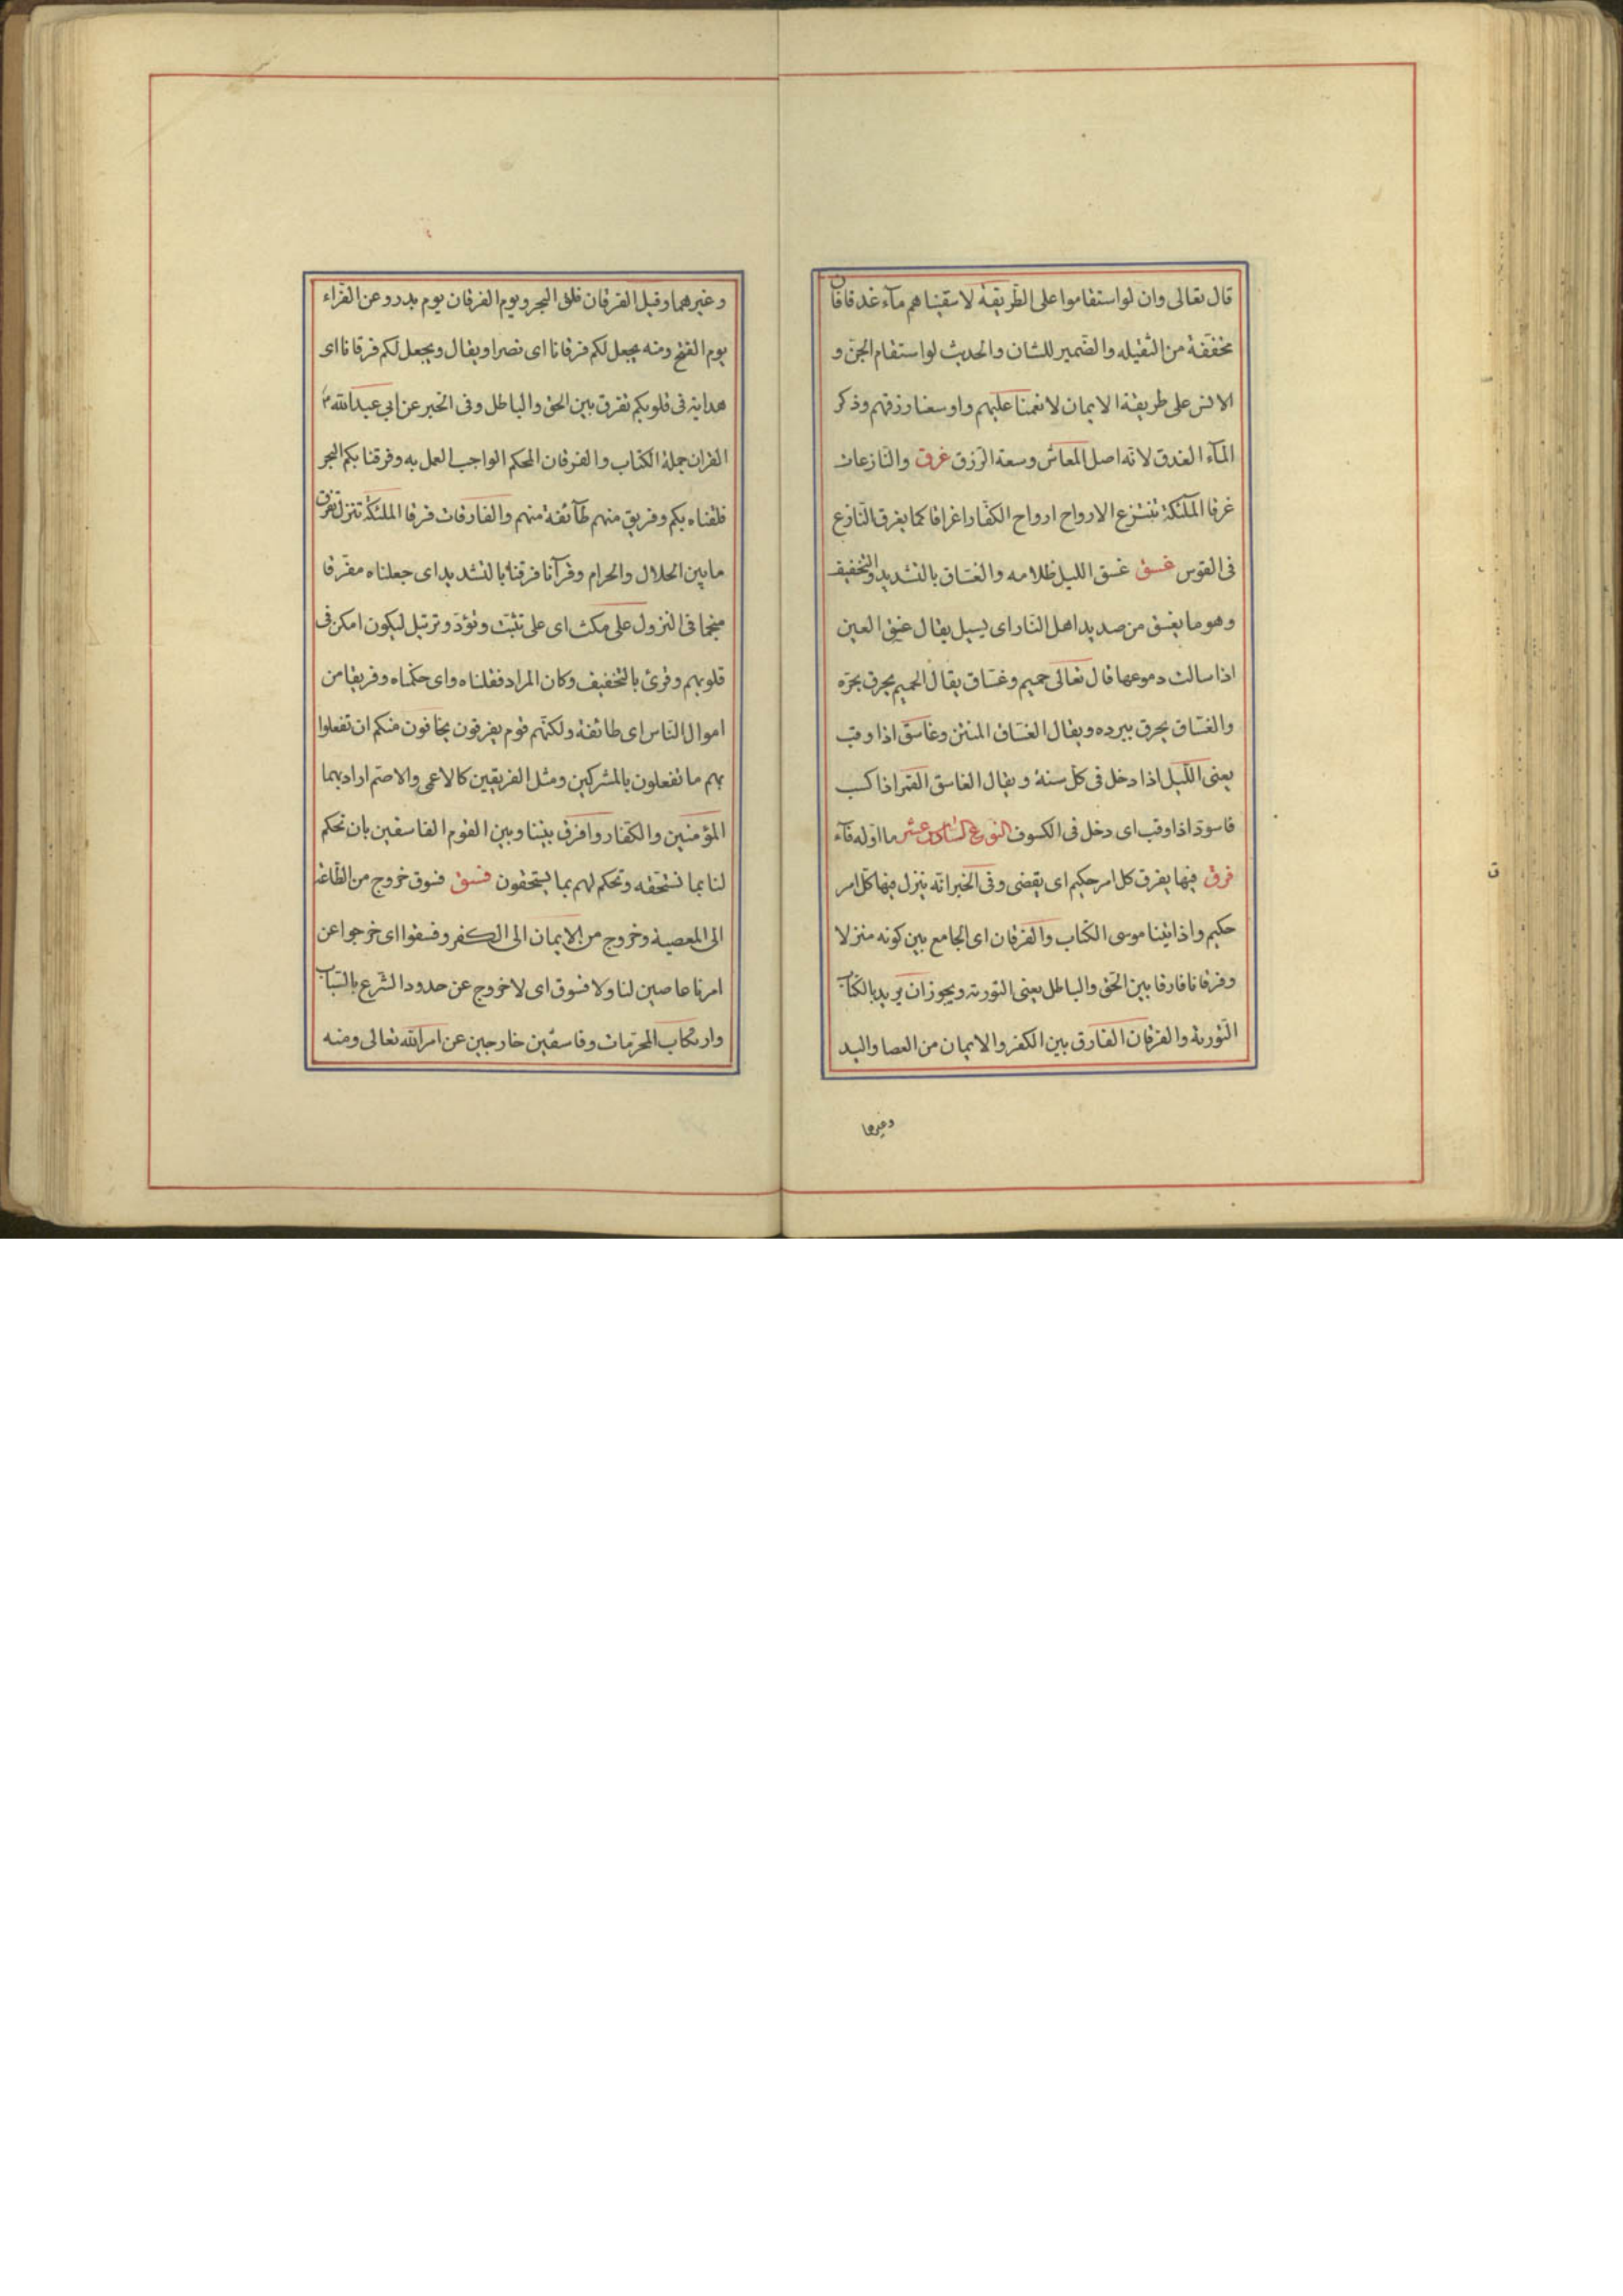 قال تعالى وان لو استقاموا على الطّريقة لاسقيناهم مآء غدقا فان
مخفّفة من الثقيله والضّمير للشان والحديث لو استقام الجنّ و
الانس على طريقة الايمان لانعمنا عليهم واوسعنا رزقهم وذكر
المآء الغدق لانّه اصل المعاش وسعة الرّزق غرق والنّازعات
غرقا الملٓئكة تنتزع الارواح ارواح الكفّار اغراقا كما يغرق النّازع
فى القوس غسق غسق الليل ظلامه والغسّاق بالتشديد والتخفيف
وهو ما يغسق من صديد اهل النّار اى يسيل يقال غسق العين
اذا سالت دموعها قال تعالى حميم وغسّاق يقال الحميم يحرق بحرّه
والغسّاق يحرق ببرده ويقال الغسّاق المنتن وغاسق اذا وقب
يعنى اللّيل اذا دخل فى كلّ سنة ويقال الغاسق القمر اذا كسب
فاسودّ اذا وقب اى دخل فى الكسوف النوع السّادس عشر ما اوّله فآء
فرق فيها يفرق كل امر حكيم اى يقضى وفى الخبر انّه ينزل فيها كلّ امر
حكيم واذ اتينا موسى الكتاب والفرقان اى الجامع بين كونه منزلا
وفرقانا فارقا بين الحقّ والباطل يعنى التورية ويجوز ان يريد بالكتاب
التّورية والفرقان الفارق بين الكفر والايمان من العصا واليد
وغيرهما
وغيرهما وقيل الفرقان فلق البحر ويوم الفرقان يوم بدر وعن الفرّاء
يوم الفتح ومنه يجعل لكم فرقانا اى نصرا ويقال ويجعل لكم فرقانا اى
هداية فى قلوبكم تفرق بين الحق والباطل وفى الخبر عن ابي عبد الله ع
القران جملة الكتاب والفرقان المحكم الواجب العمل به وفرقنا بكم البحر
فلقناه بكم وفريق منهم طآئفة منهم والفارقات فرقا الملئكة تنزل تفرق
ما بين الحلال والحرام وقرآنا فرقناه بالتشديد اى جعلناه مفرّقا
منجما فى النزول على مكث اى على تثبّت وتؤدّ وترتيل ليكون امكن فى
قلوبهم وقرئ بالتخفيف وكان المراد فقلناه واى حكمناه وفريقا من
اموال النّاس اى طائفة ولكنّهم قوم يفرقون يخافون منكم ان تفعلوا
بهم ما تفعلون بالمشركين ومثل الفريقين كالاعمى والاصمّ اراد بهما
المؤمنين والكفّار وافرق بيننا وبين القوم الفاسقين بان تحكم
لنا بما نستحقه وتحكم لهم بما يستحقون فسق فسوق خروج من الطّاعة
الى المعصية وخروج من الايمان الى الكفر وفسقوا اى خرجوا عن
امرنا عاصين لنا ولا فسوق اى لا خروج عن حدود الشرع بالسّباب
وارتكاب المحرّمات وفاسقين خارجين عن امر الله تعالى ومنه